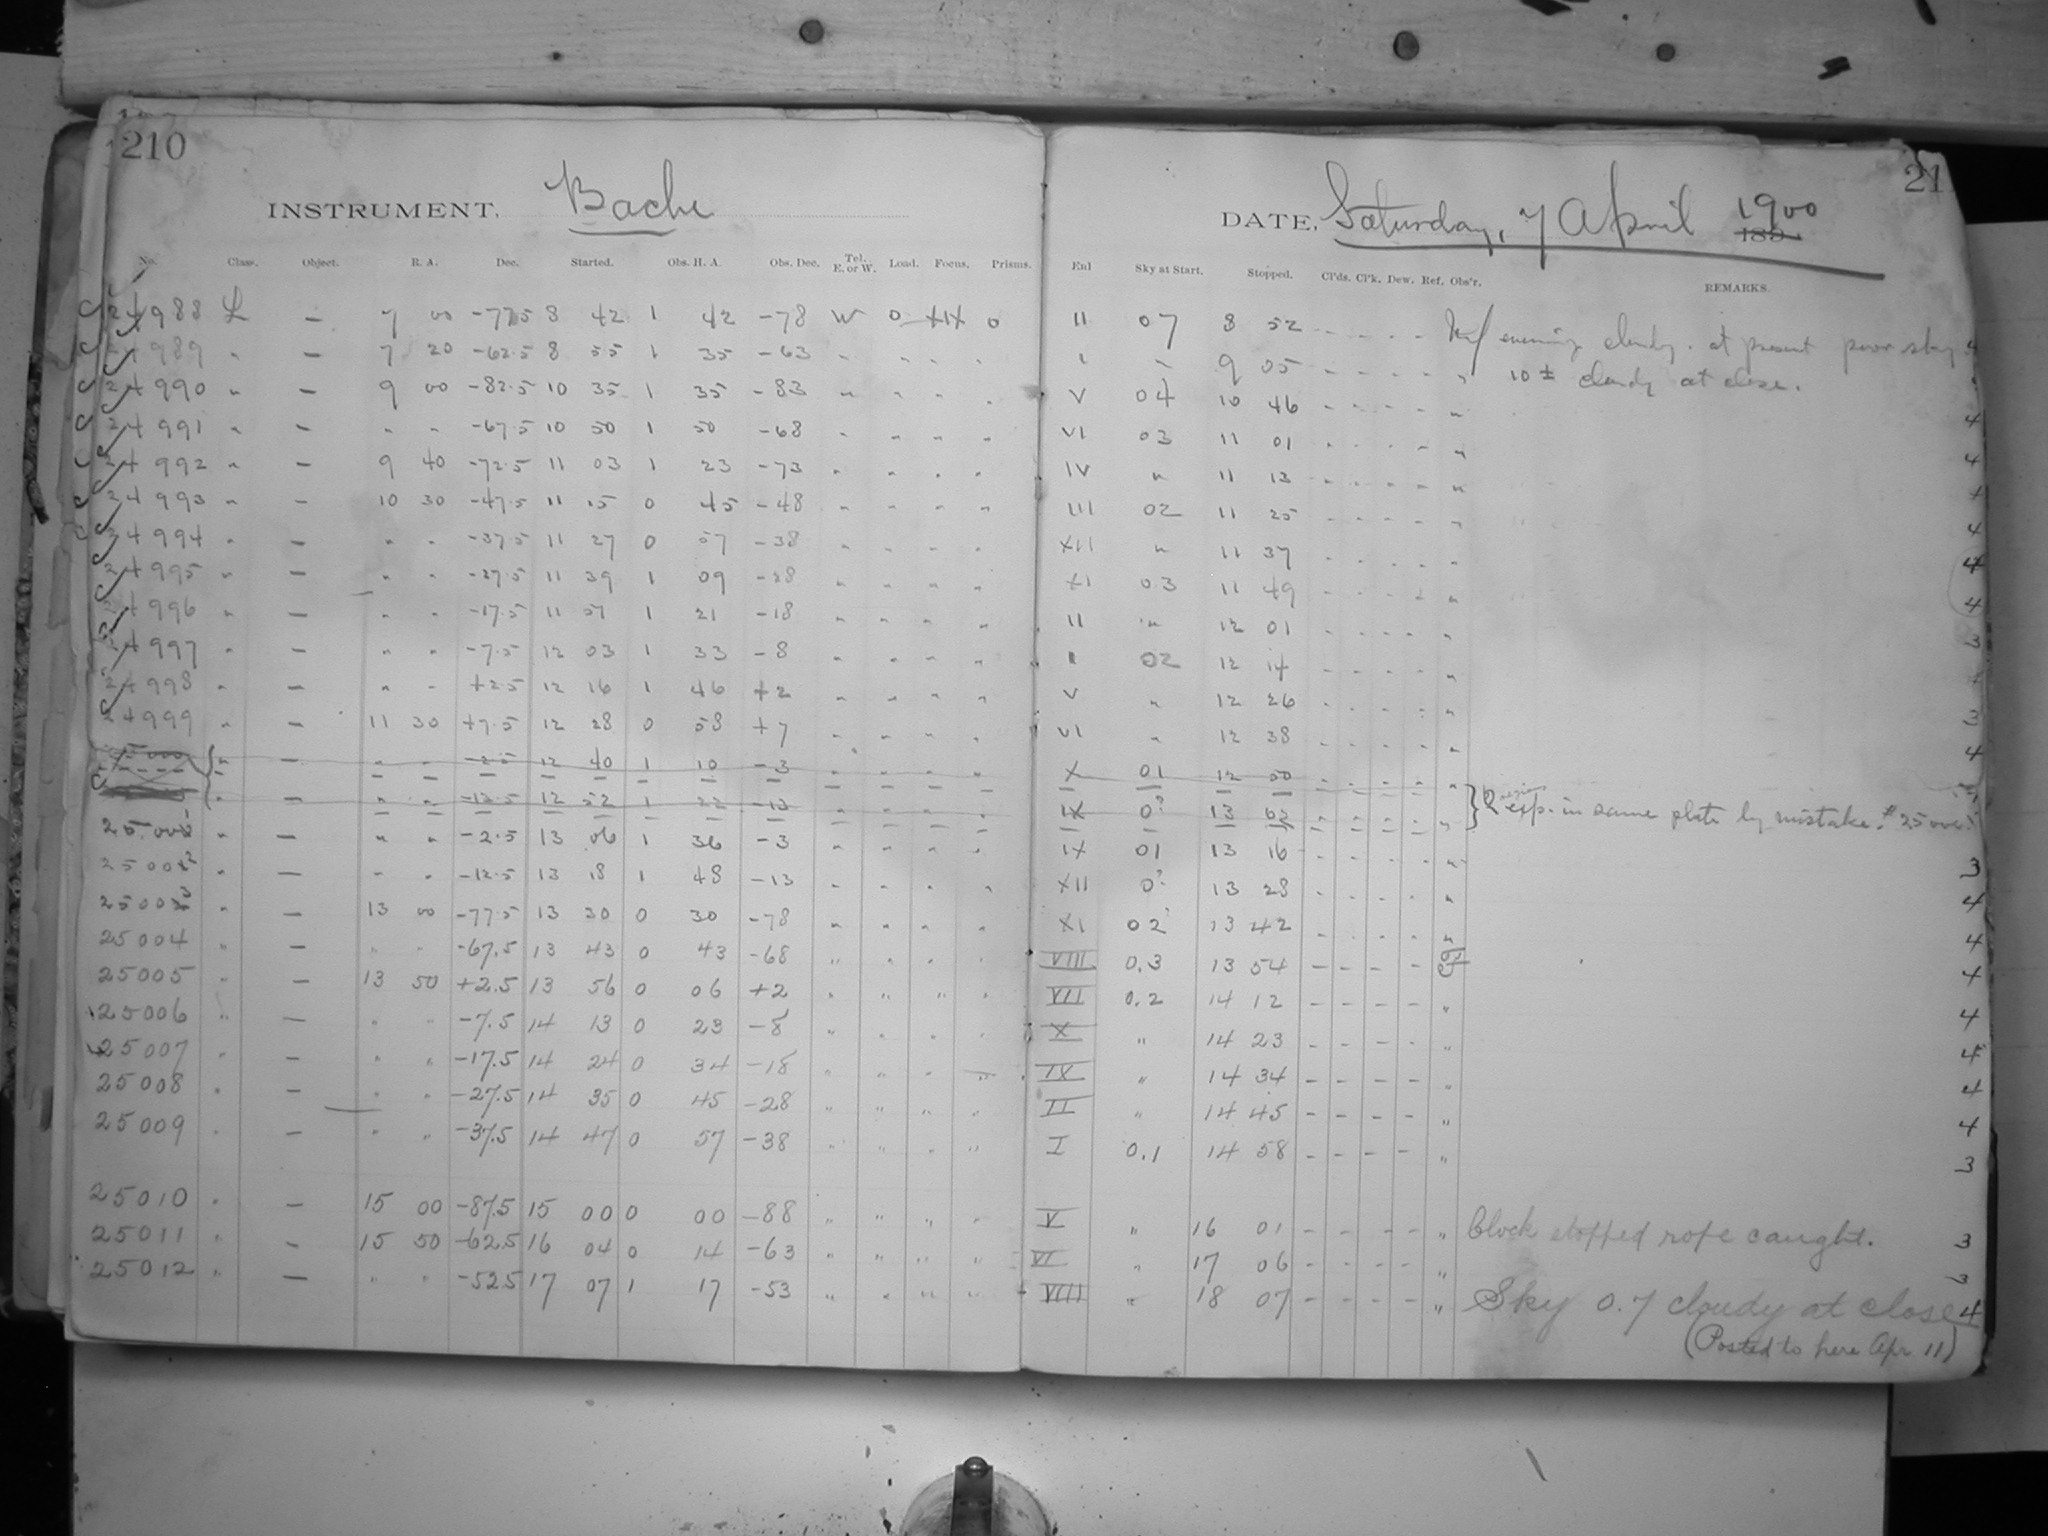 210
INSTRUMENT. Bache
No. Class. Object. R. A. Dec. Started. Obs. H. A. Obs. Dec. Tel. E. or W. Load. Focus. Prisms.
24988 L - 7 00 -77.5 8 42 1 42 -78 W 0 0
24989 " - 7 20 -62.5 8 55 1 35 -63 " " " "
24990 " - 9 00 -82.5 10 35 1 35 -83 " " " "
24991 " - " " -67.5 10 50 1 50 -68 " " " "
24992 " - 9 40 -72.5 11 03 1 23 -73 " " " "
24993 " - 10 30 -47.5 11 15 0 45 -48 " " " "
24994 " - " " -37.5 11 27 0 57 -38 " " " "
24995 " - " " -27.5 11 39 1 09 -28 " " " "
24996 " - " " -17.5 11 51 1 21 -18 " " " "
24997 " - " " -7.5 12 03 1 33 -8 " " " "
24998 " - " " +2.5 12 16 1 46 +2 " " " "
24999 " - 11 30 +7.5 12 28 0 58 +7 " " " "
25000 " - " " -2.5 12 40 1 10 -3 " " " "
" - " " -12.5 12 52 1 22 -13 " " " "
25001 " - " " -2.5 13 06 1 36 -3 " " " "
25002 " - " " -12.5 13 18 1 48 -13 " " " "
25003 " - 13 00 -77.5 13 30 0 30 -78 " " " "
25004 " - " " -67.5 13 43 0 43 -68 " " " "
25005 " - 13 50 +2.5 13 56 0 06 +2 " " " "
25006 " - " " -7.5 14 13 0 23 -8 " " " "
25007 " - " " -17.5 14 24 0 34 -18 " " " "
25008 " - " " -27.5 14 35 0 45 -28 " " " "
25009 " - " " -37.5 14 47 0 57 -38 " " " "
25010 " - 15 00 -87.5 15 00 0 00 -88 " " " "
25011 " - 15 50 -62.5 16 04 0 14 -63 " " " "
25012 " - " " -52.5 17 07 1 17 -53 " " " "
21
DATE, Saturday, 7 April 1900
189
Sky at Start. Stopped. Cl'ds. Cl'k. Dew. Ref. Obs'r. REMARKS.
II 07 8 52 - - - - evening cloudy. at present poor sky 4
I " 9 05 - - - - " 10± cloudy at close.
V 04 10 46 - - - - " 4
VI 03 11 01 - - - - " 4
IV " 11 13 - - - - " 4
III 02 11 25 - - - - " 4
XII " 11 37 - - - - " 4
XI 03 11 49 - - - - " 4
II " 12 01 - - - - " 3
02 12 14 - - - - "
V " 12 26 - - - - " 3
VI " 12 38 - - - - " 4
X 01 12 50 - - - - "
IX 0? 13 02 - - - - " 2 exp. in same plate by mistake. # 25000
IX 01 13 16 - - - - " 3
XII 0? 13 28 - - - - " 4
XI 02 13 42 - - - - " 4
VIII 0.3 13 54 - - - - 4
VII 0.2 14 12 - - - - " 4
X " 14 23 - - - - " 4
IX " 14 34 - - - - " 4
II " 14 45 - - - - " 4
I 0.1 14 58 - - - - " 3
V " 16 01 - - - - " Clock stopped rope caught. 3
VI " 17 06 - - - - " 3
VIII " 18 07 - - - - " Sky 0.7 cloudy at close 4
(Posted to here Apr 11)